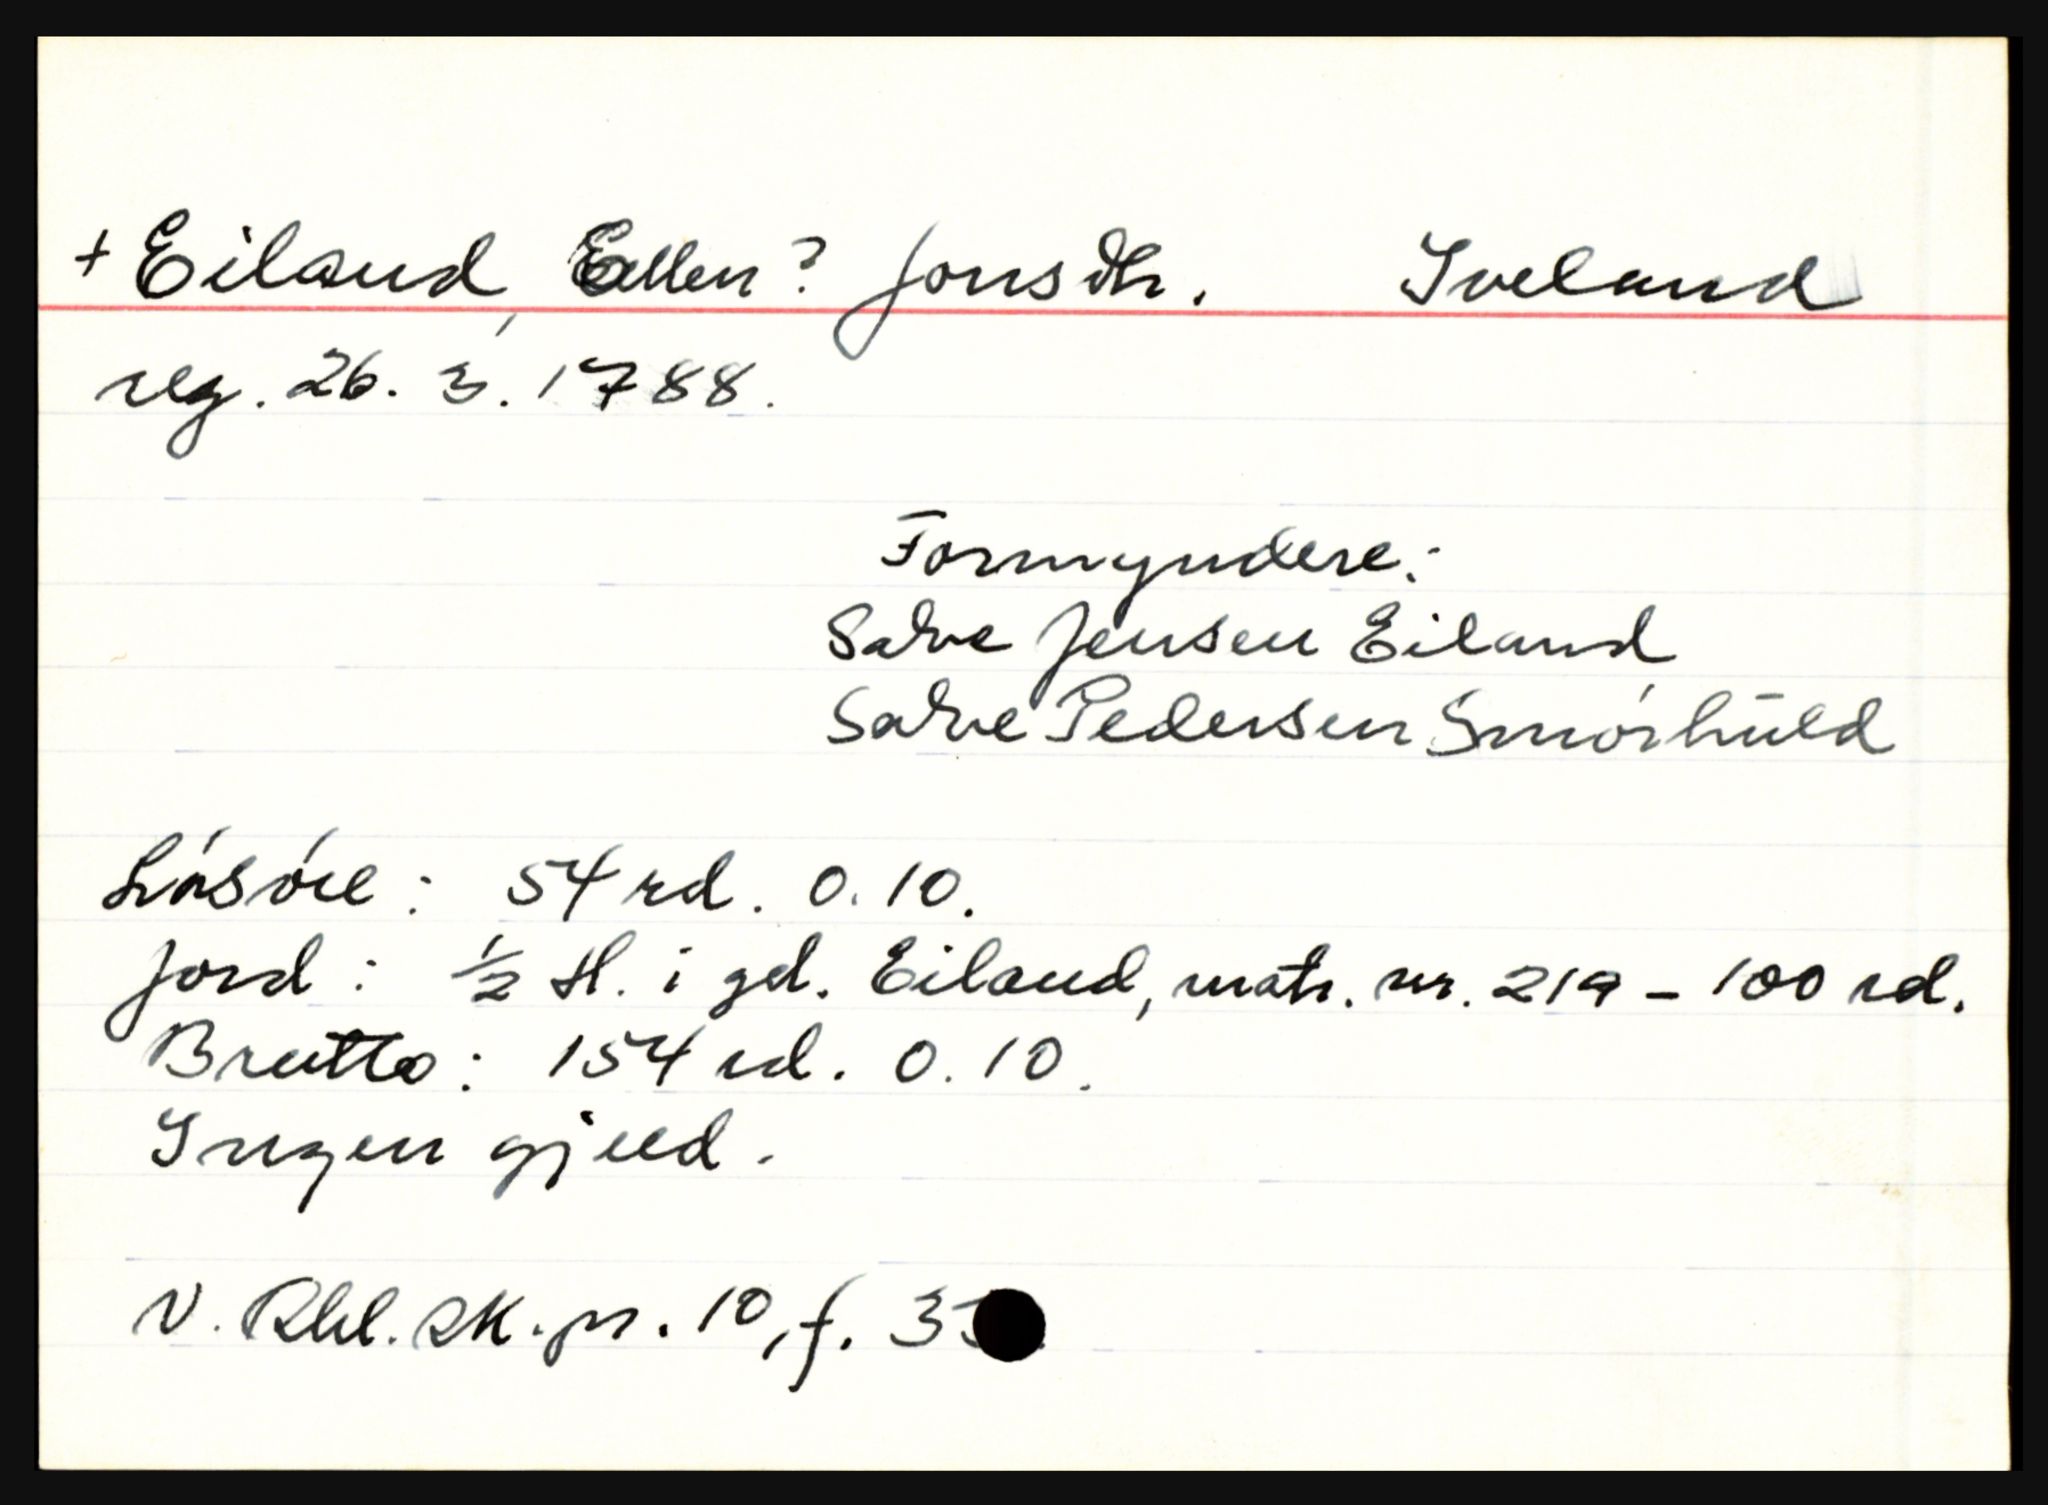 + Eiland, Ellen? Jonsdtr. Iveland
reg. 26. 3. 1788.
Formyndere:
Salve Jensen Eiland
Salve Pedersen Smörhüld
Lósóre: 54 rd. 0. 10.
Jord: ½ hl. i gd. Eiland, matr. nr. 219 - 100 rd.
Brutto: 154 rd. 0. 10.
Ingen gjeld.
N. Rbl. sk. pr. 10, f.